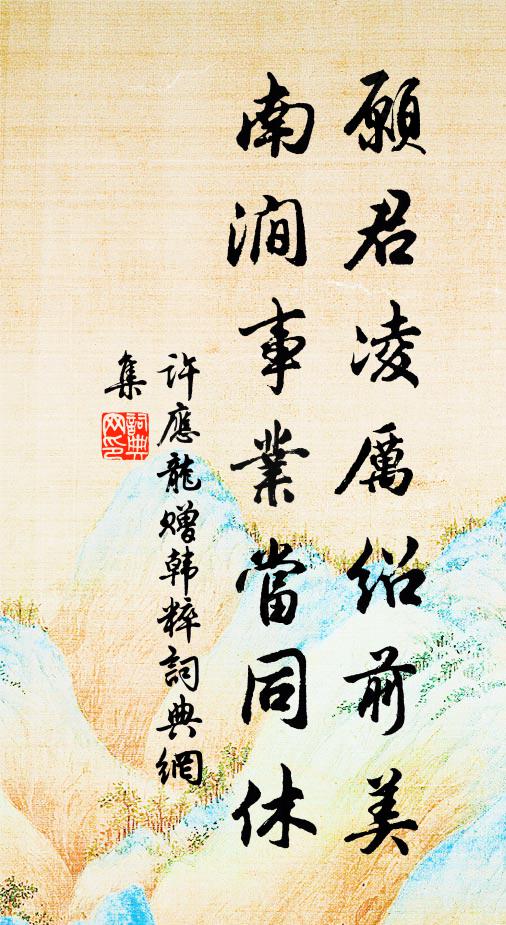 願君凌厲紹前美
南澗事業當同休
許應龍贈韩粹詞典網
集
詞典
网印